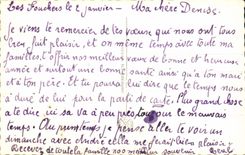 Les Fouchers le 2 janvier - Ma chère Denise
je viens te remercier de tes vœux qui nous ont tous
bien fait plaisir, et en même temps avec toute ma
famille t'offre nos meilleurs vœux de bonne et heureuse
année et surtout une bonne santé ainsi qu'à ton mari
et à ton père. Et tu pourras lui dire que le temps nous
a duré de lui pour la partie de carte. Plus grand chose
a te dire ici sa va à peu près tous pour le mauvais
temps. Au printemps je pense aller te voir un
dimanche avec André elle me ferait bien plaisir
Recever de toute la famille nos meilleurs souvenir